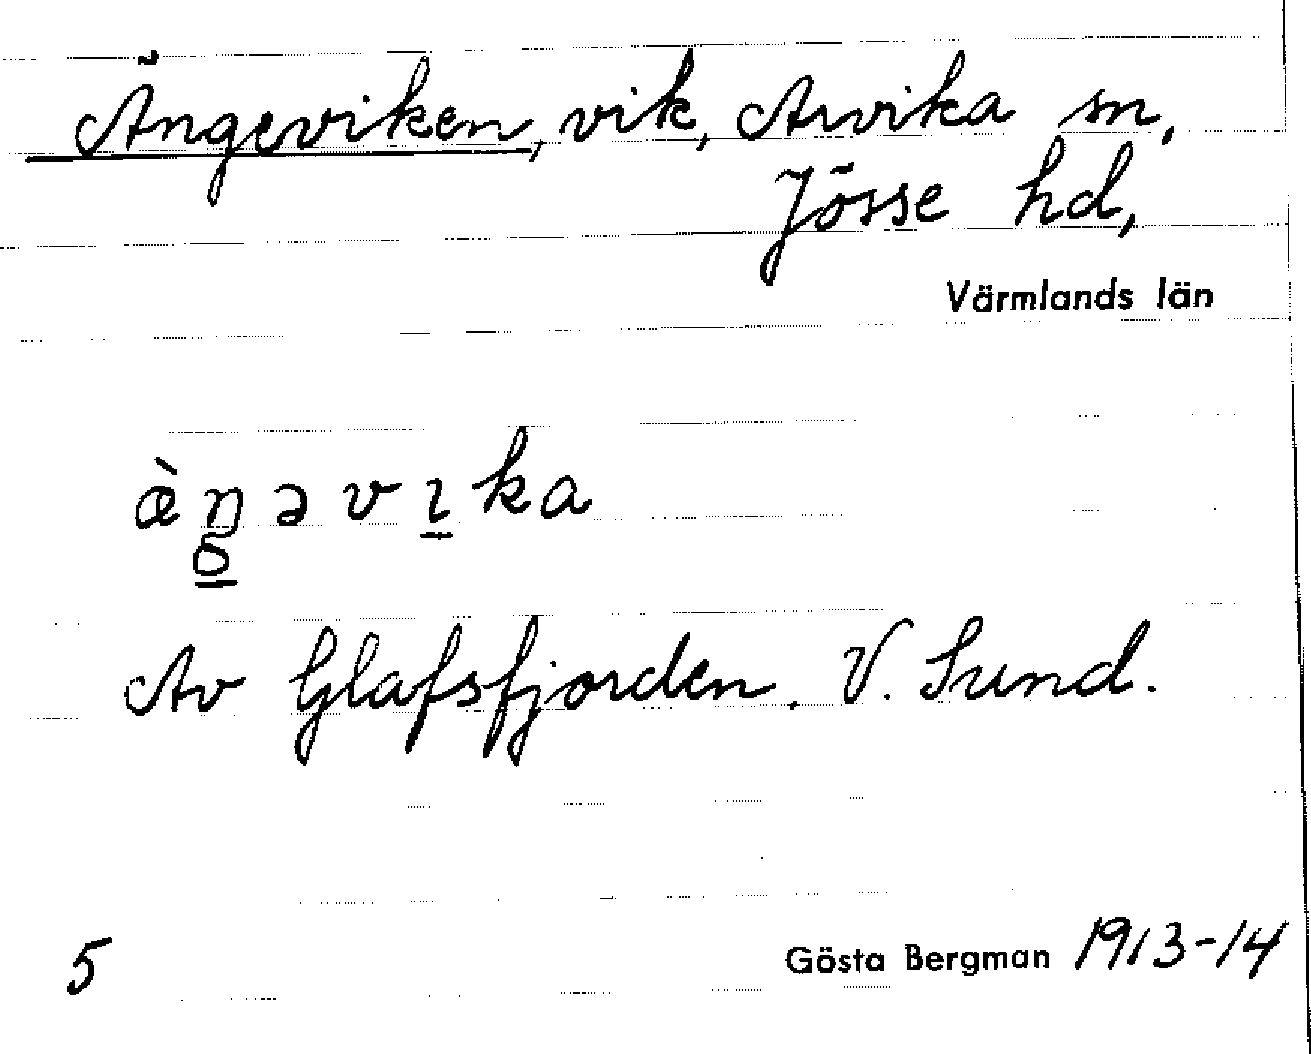 Ängeviken, vik, Arvika sn,
Jösse hd,
Värmlands län
æ̀ŋəvıka
Av Glafsfjorden. V. Sund.
5 Gösta Bergman 1913-14